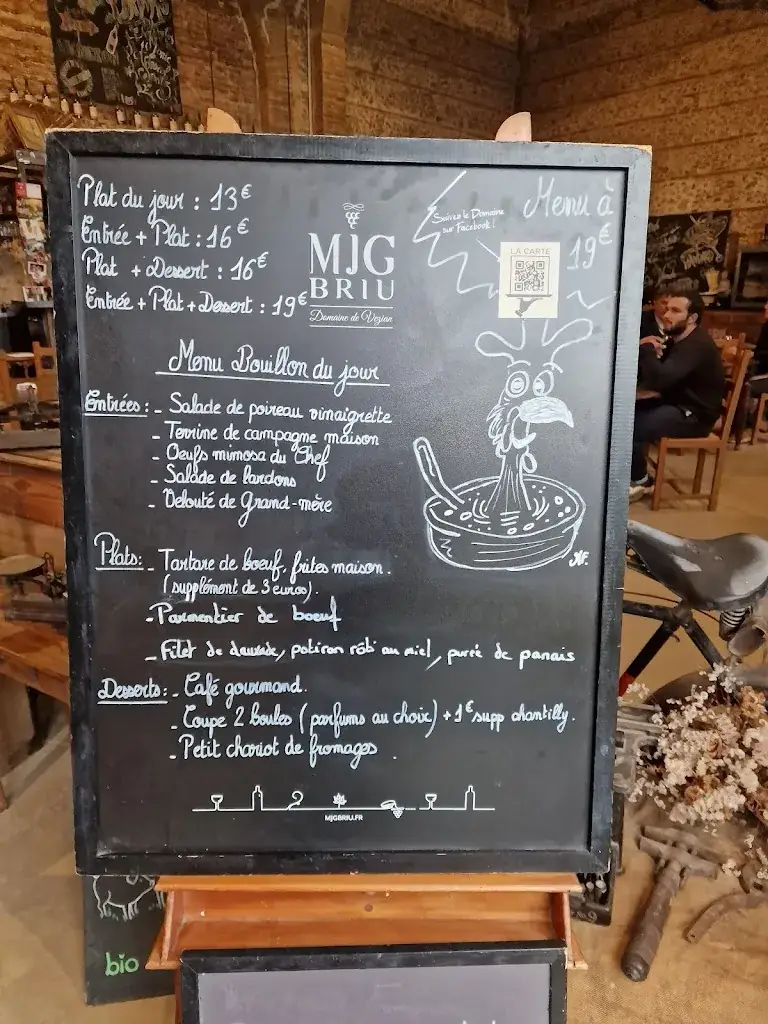 Plat du jour : 13€
Entrée + Plat : 16€
Plat + Dessert : 16€
Entrée + Plat + Dessert : 19€
MJG
BRIU
Domaine de Vezian
Suivez le Domaine
sur Facebook !
LA CARTE
Menu à
19€
Menu Bouillon du jour
Entrées : - Salade de poireau vinaigrette
- Terrine de campagne maison
- Oeufs mimosa du Chef
- Salade de lardons
- Velouté de Grand-mère
Plats : - Tartare de boeuf, frites maison.
(supplément de 3 euros).
- Parmentier de boeuf
- Filet de daurade, potiron rôti au miel, purée de panais
Desserts : - Café gourmand.
- Coupe 2 boules (parfums au choix) + 1€ supp chantilly.
- Petit chariot de fromages.
MJGBRIU.FR
bio